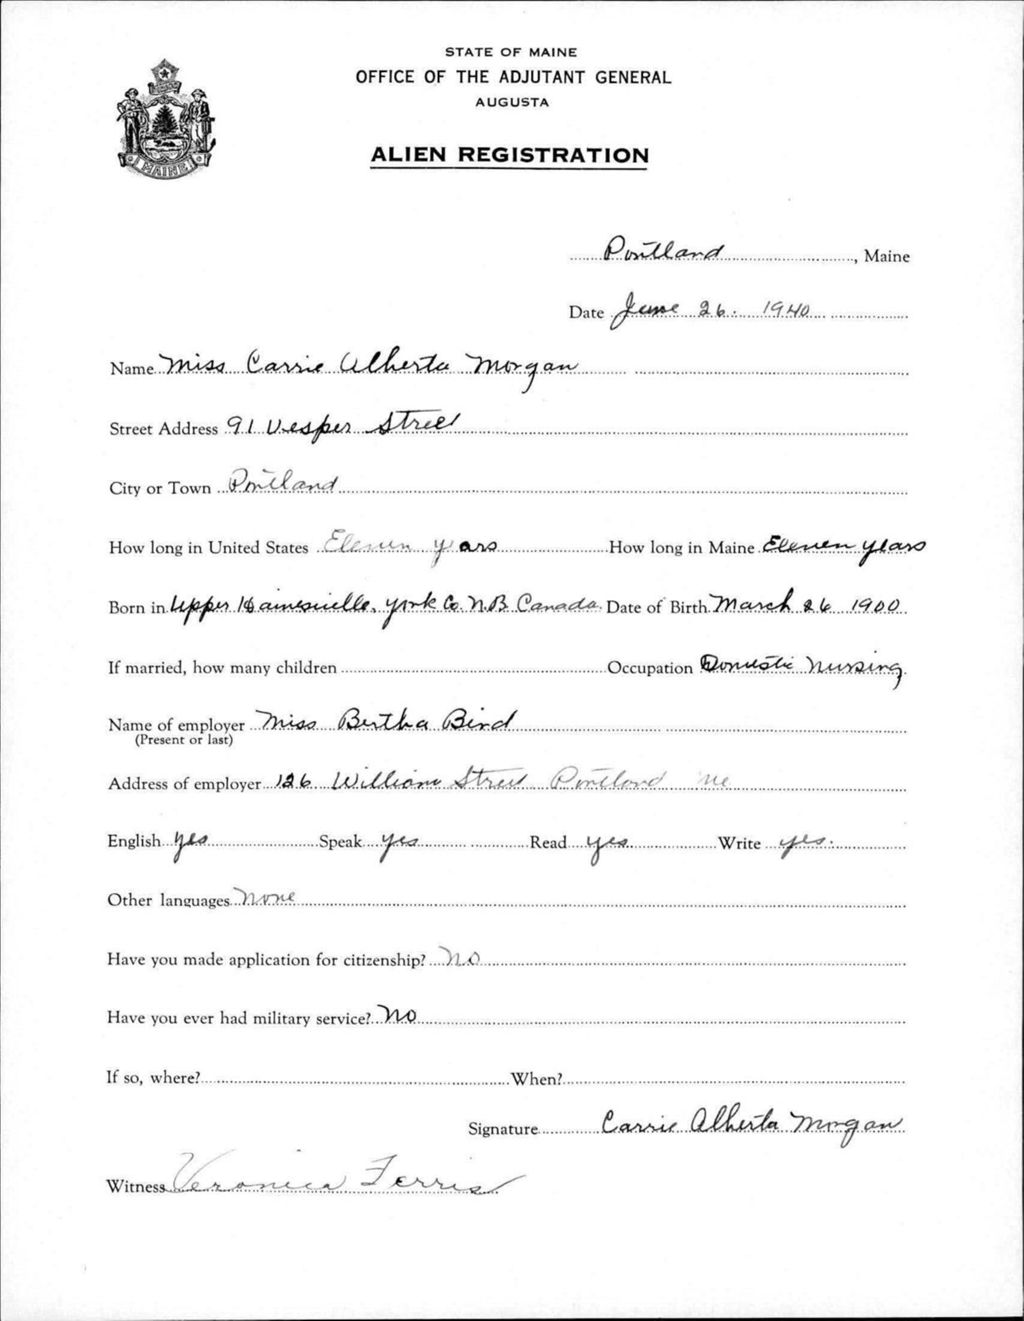 STATE OF MAINE
OFFICE OF THE ADJUTANT GENERAL
AUGUSTA
ALIEN REGISTRATION
MAINE
Portland, Maine
Date June 26. 1940
Name Miss Carrie Alberta Morgan
Street Address 91 Vesper Street
City or Town Portland
How long in United States Eleven years How long in Maine Eleven years
Born in Upper Hainesville, York Co. N.B. Canada Date of Birth March 26 1900
If married, how many children Occupation Domestic Nursing
Name of employer Miss Bertha Bird
(Present or last)
Address of employer 126 William Street Portland Me
English yes Speak yes Read yes Write yes.
Other languages None
Have you made application for citizenship? No
Have you ever had military service? No
If so, where? When?
Signature Carrie Alberta Morgan
Witness Veronica Ferris